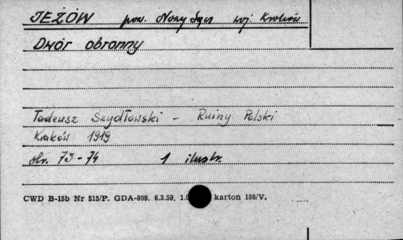 JEŻÓW pow. Nowy Sącz woj. Kraków
Dwór obronny
Tadeusz Szydłowski - Ruiny Polski
Kraków 1919
str. 73-74 1 ilustr.
CWD B-15b Nr 515/P. GDA-809. 6.3.59. karton 180/V.